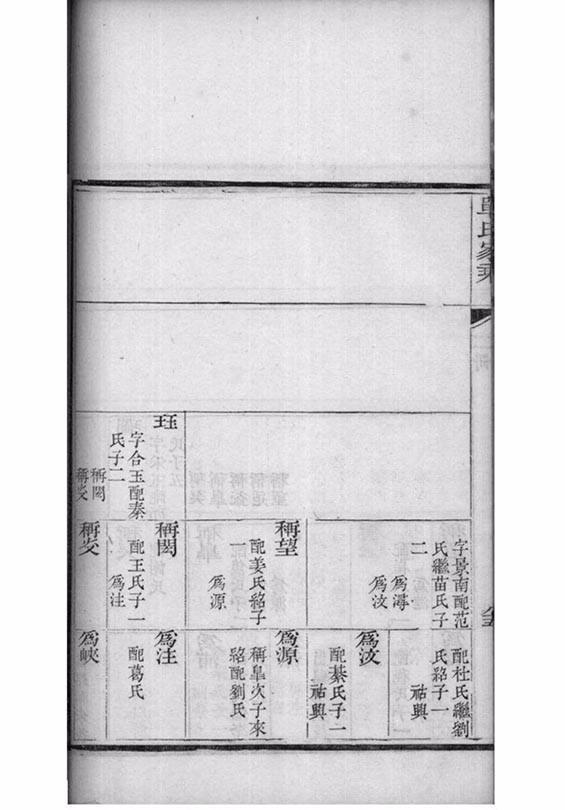 單氏家乘
玨
字合玉配秦
氏子二
稱閎
稱交
字景南配范
氏繼苗氏子
二
爲潯
爲汶
稱望
配姜氏紹子
一
爲源
稱閎
配王氏子一
爲注
稱交
配杜氏繼劉
氏紹子一
祜興
爲汶
配綦氏子一
祜興
爲源
稱皐次子來
紹配劉氏
爲注
配葛氏
爲峽